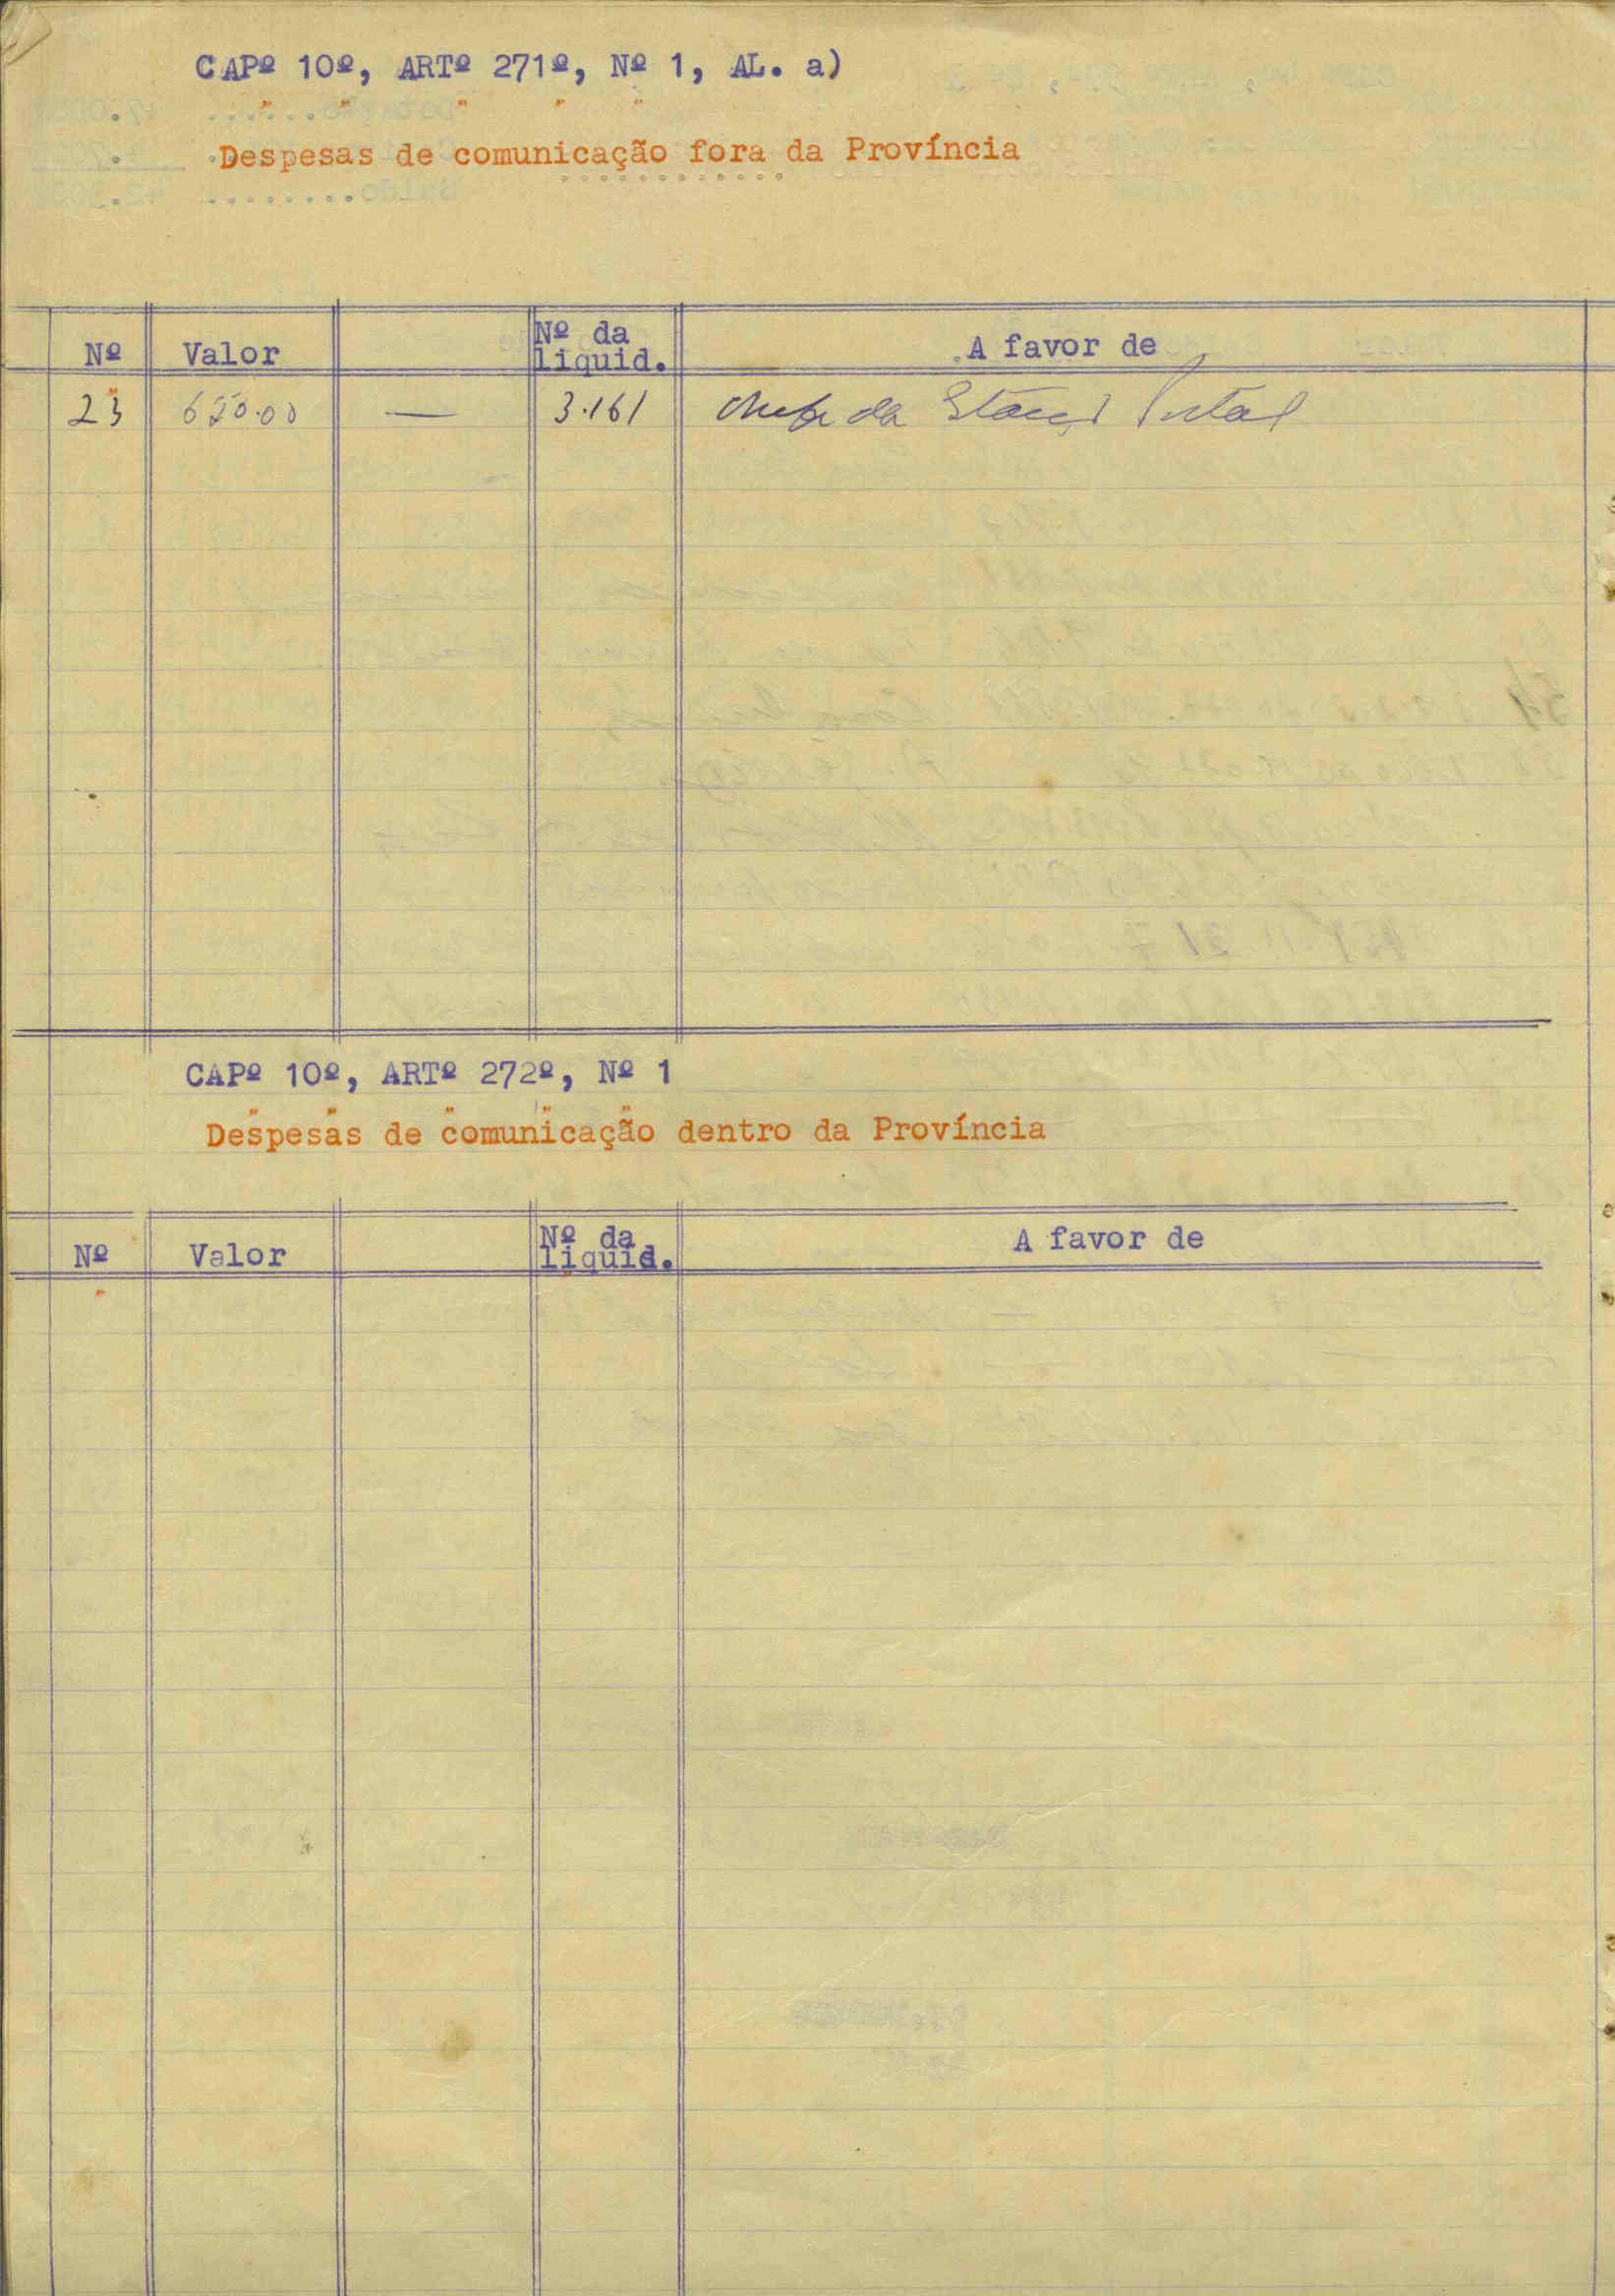 CAPº 10º, ARTº 271º, Nº 1, AL. a)
Despesas de comunicação fora da Província
Nº Valor Nº da liquid. A favor de
23 650.00 — 3.161 Chefe da Estação Postal
CAPº 10º, ARTº 272º, Nº 1
Despesas de comunicação dentro da Província
Nº Valor Nº da liquid. A favor de